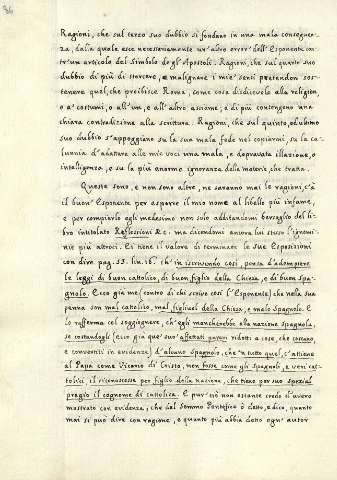 36
Ragioni, che sul terzo suo dubbio si fondano in una mala conseguen-
za, dalla quale esce necessariamente un'altro error dell'Esponente con-
tr'un articolo del Simbolo degl'Apostoli. Ragioni, che sul quarto suo
dubbio di più di storcere, e malignare i mie' sensi pretendon sos-
tenere qual, che proibisce Roma, come cosa disdicevole alla religion,
o a' costumi, o all'un, e all'altro assieme, e di più contengono una
chiara contradizione alla scrittura. Ragioni, che sul quinto, ed ultimo
suo dubbio s'appoggiano su la sua mala fede nel copiarmi, su la ca-
lumnia d'adattare alle mie voci una mala, e depravata illazione, o
intelligenza, e su la più enorme ignoranza delle materie che tratta.
Queste sono, e non sono altre, ne saranno mai le ragioni, c'à
il buon'Esponente per asperge il mio nome al libello più infame,
e per comporlo egli medesimo non solo additandomi bersaglio del li-
bro intitolato Reflessioni &c: ma dicendomi ancora lui stesso l'ignomi-
nie più atroci. Ei tiene il valore di terminare le sue Esposizioni
con dire pag. 53. lin. 16. ch'in iscrivendo così, pensa d'adempiere
le leggi di buon cattolico, di buon figlio della Chiesa, e di buon Spa-
gnolo. Ecco già me (contro di chi scrive così l'Esponente) che nella sua
penna son mal cattolico, mal figliuol della Chiesa, e malo Spagnolo. E
lo rafferma col soggiugnere, ch'egli mancherebbe alla nazione spagnola,
se costandogli (ecco già que' suoi affettati pareri ridotti a cose, che costano,
e consenti in evidenza) d'alcuno spagnolo, che 'n tutto quel, c'attiene
al Papa come Vicario di Cristo, non fosse come gli spagnoli, e veri cat-
tolici, il riconoscesse per figlio della nazione, che tiene per suo spezial
pregio il cognome di cattolica. E pur ciò non ostante credo d'avere
mostrato con evidenza, che del Sommo Pontefice ò detto, e dico, quanto
mai si può dire con ragione, e quanto più abbia detto ogn'autor